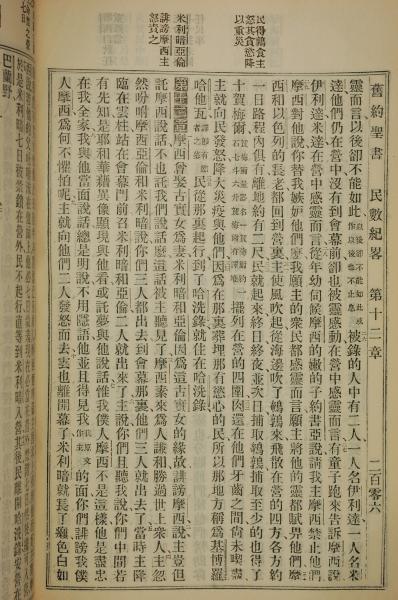 舊約聖書 民數紀畧 第十二章 二百零六
民得鵪食主
怒其貪慾降
以重災
靈而言以後卻不能如此被錄的人中有二人一人名伊利達一人名米
達他們仍在營中沒有到會幕前卻也被靈感動在營中感靈而言有童子跑來告訴摩西說
伊利達米達在營中感靈而言從年幼伺候摩西的嫩的子約書亞說請我主摩西禁止他們
摩西對他說你替我嫉妒他們麼我願主的衆民都感靈而言願主將他的靈都賦畀他們摩
西和以色列的長老都回到營裏主使風吹起從海邊吹了鵪鶉來飛散在營的四方各方約
一日路程內俱有離地約有二尺民就起來終日終夜並次日捕取鵪鶉捕取至少的也得了
十賀梅爾擺列在營的四圍肉還在他們牙齒之間尚未喫盡
主就向民發怒降大災疫與他們因爲在那裏葬埋那有慾心的民所以那地方稱爲基博羅
哈他瓦民從那裏起行到了哈洗錄就住在哈洗錄
米利暗亞倫
誹謗摩西主
怒責之
第十二章摩西曾娶古實女爲妻米利暗和亞倫因爲這古實女的緣故誹謗摩西說主豈但
託摩西說話不也託我們說話麼這話被主聽見了摩西素來爲人謙和勝過世上衆人主忽
然吩咐摩西亞倫和米利暗說你們三人都出去到會幕那裏他們三人就出去了當時主降
臨在雲柱站在會幕門前召米利暗和亞倫二人就出來了主說你們且聽我說你們中間若
有先知是耶和華藉異像顯現與他看或託夢與他說話惟我僕人摩西不是這樣他是盡忠
在我全家我與他當面說話總是明說不用隱語他並且得見我我原文作主的面你們誹謗我僕
人摩西爲何不懼怕呢主就向他們二人發怒而去雲也離開幕了米利暗就長了癩色白如
巴蘭野